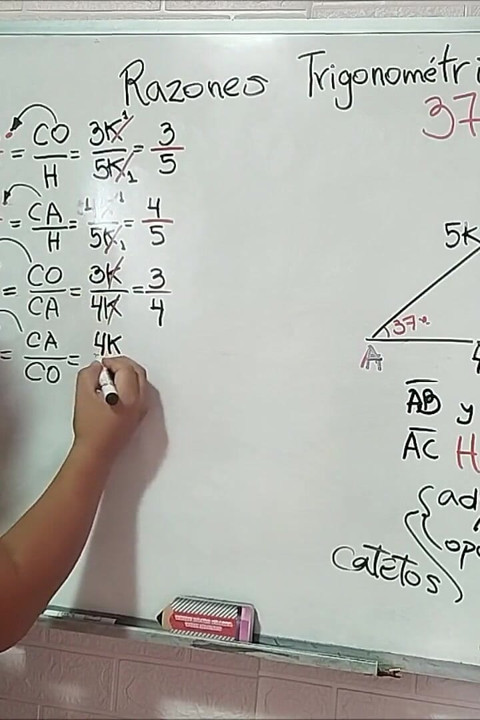 Razones Trigonométri
37
= CO/H = 3K/5K = 3/5
= CA/H = 4K/5K = 4/5
= CO/CA = 3K/4K = 3/4
= CA/CO = 4K
5K
37°
A
4
AB y
AC H
ad
opo
catetos